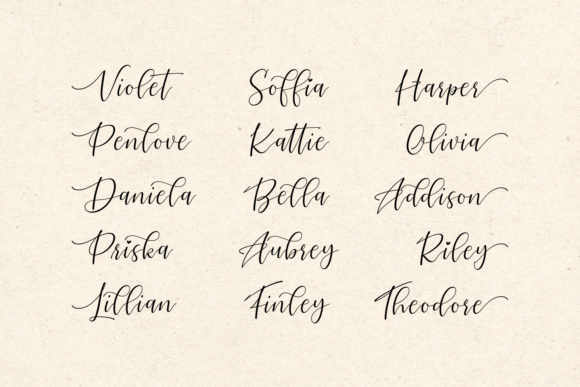 Violet Soffia Harper
Penlove Kattie Olivia
Daniela Bella Addison
Priska Aubrey Riley
Lillian Finley Theodore